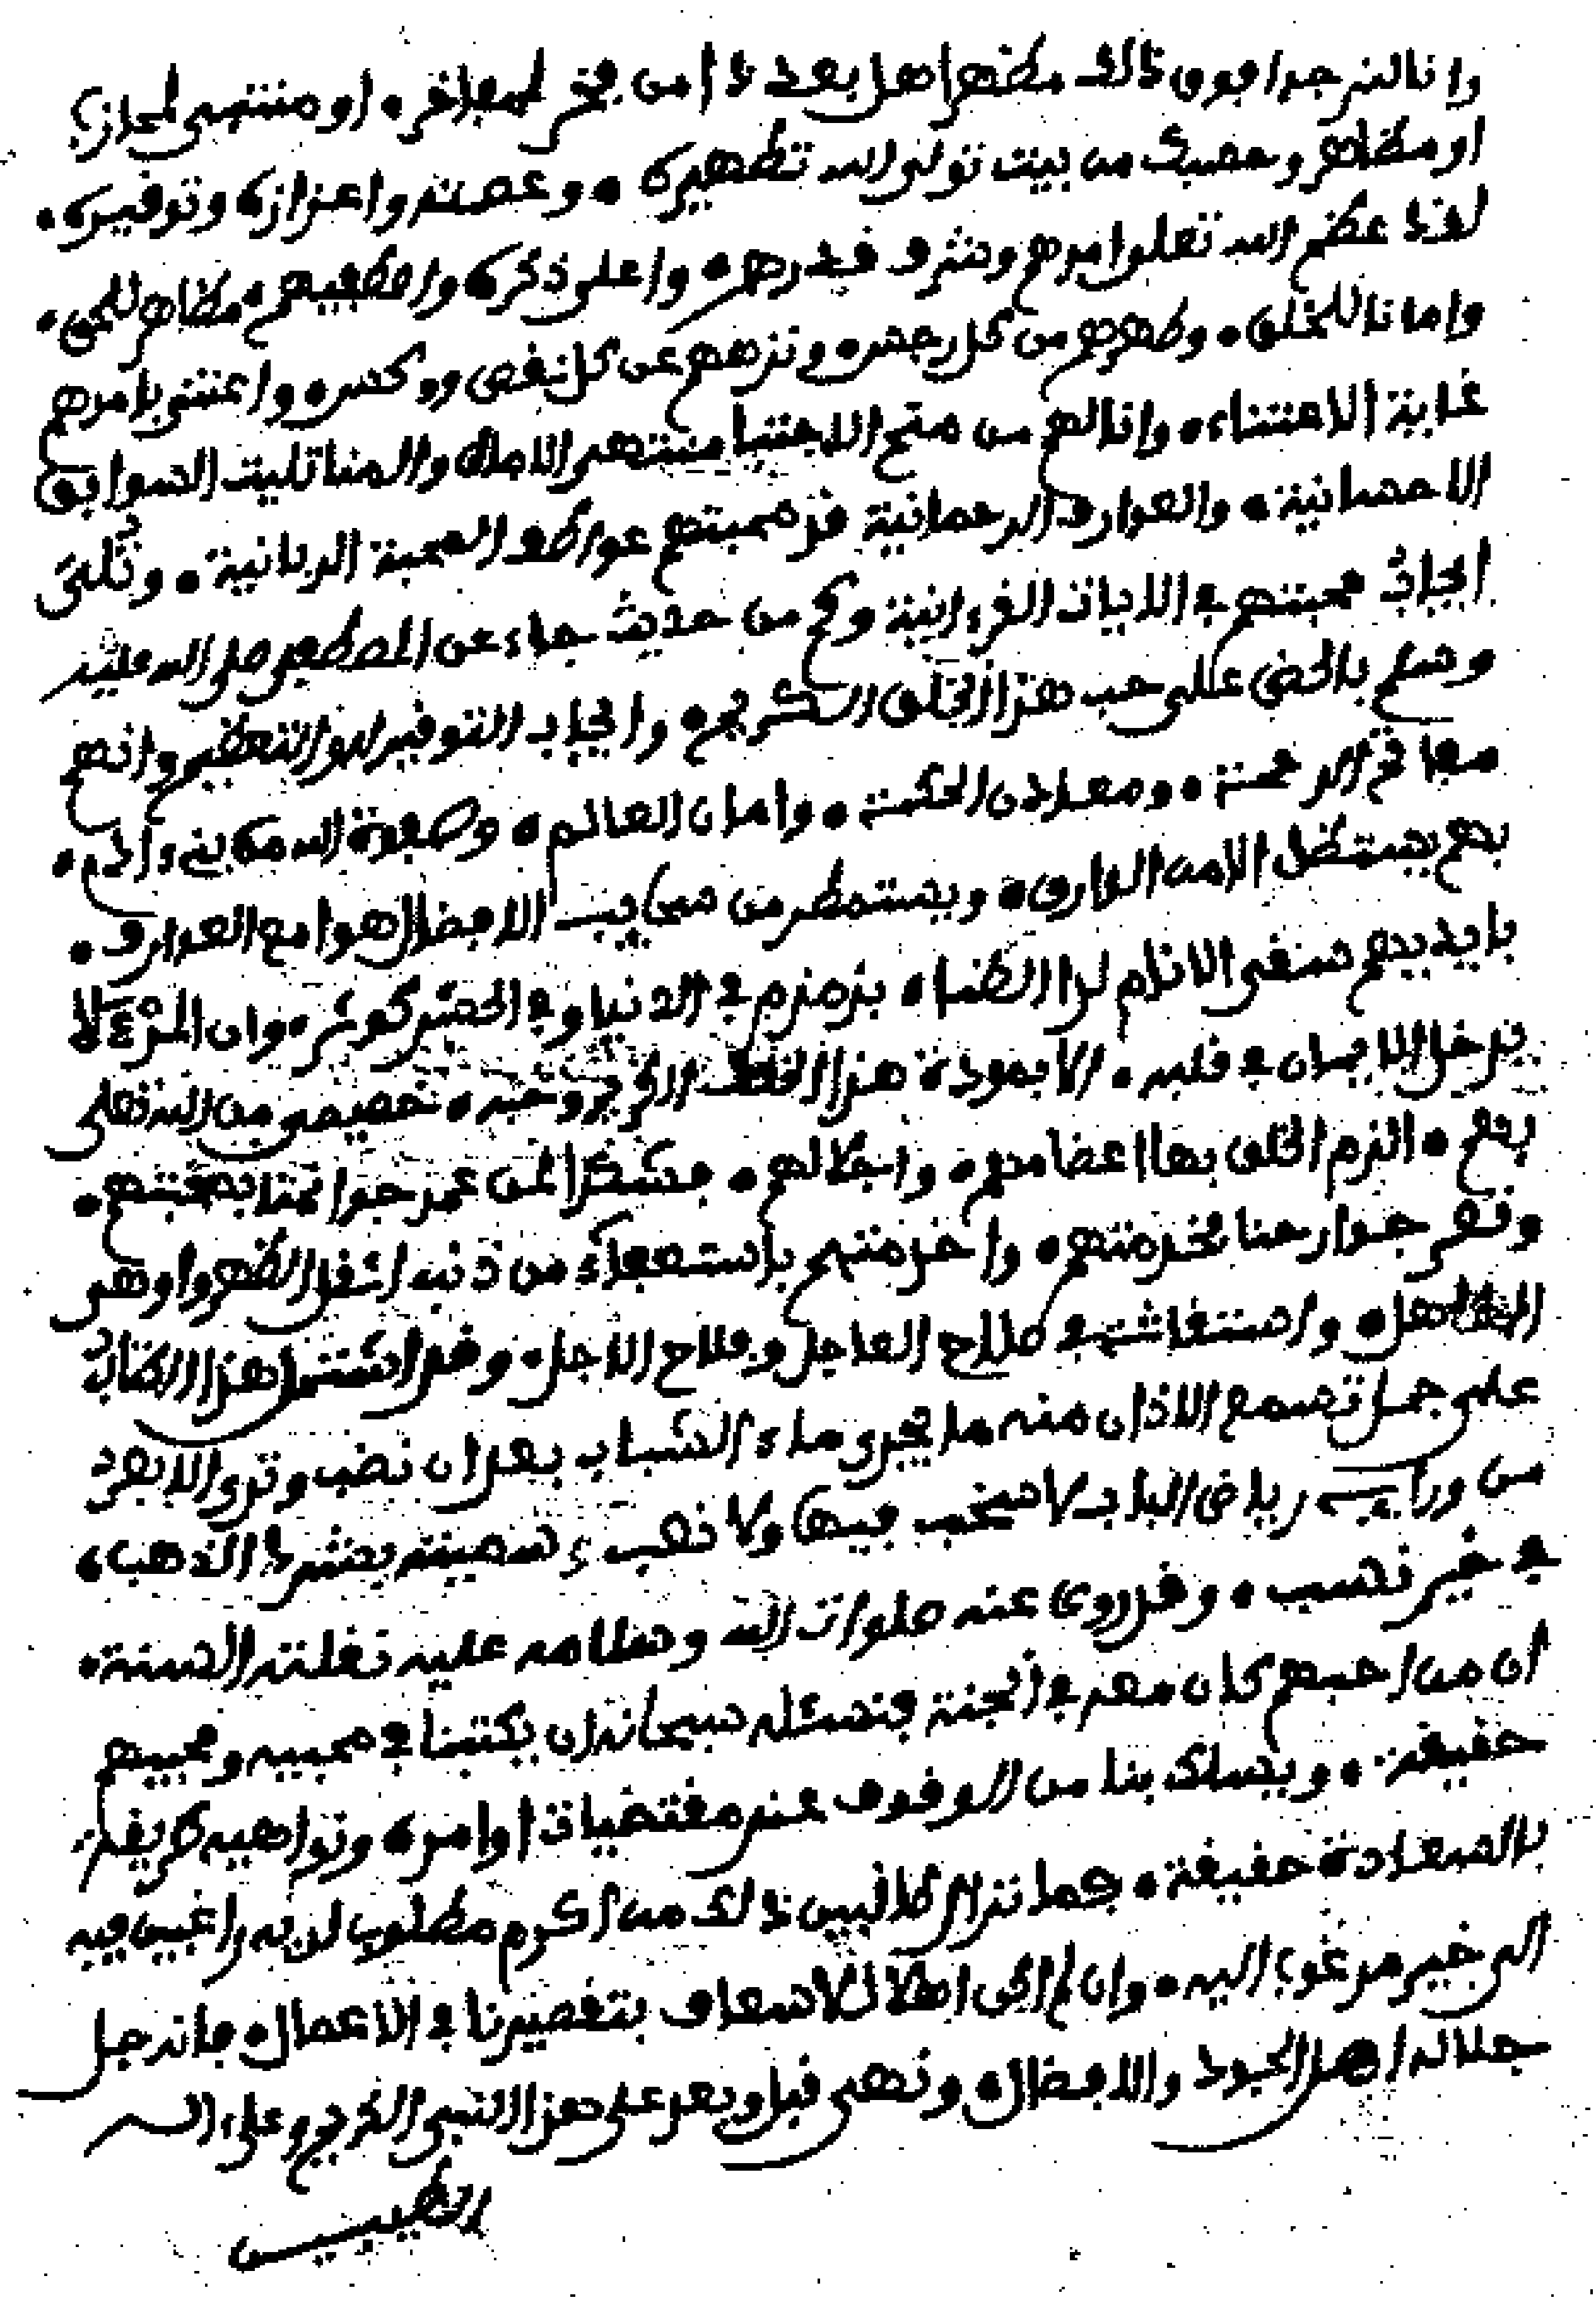 وانا لنرجوا فوق ذلك مظهرا هل بعد ذا من فخر لمفاخر، او منتهى لمجاز
او مظاهر وحسبك من بيت تولى الله تطهيره، وعصمته واعزازه وتوقيره،
لقد عظم الله تعلى امرهم وشرف قدرهم، واعلى ذكره واصطفيهم مظاهر للحق،
وامانا للخلق، وطهرهم من كل رجس، ونزههم عن كل نقص ووكس، واعتنى بامرهم
غاية الاعتناء، وانالهم من منح الاجتبا منتهى الامال والمنا تليت السوابق
الاحسانية، والعوارف الرحمانية في محبتهم عواطف المحبة الربانية، وتلقى
ايجاب محبتهم في الايات القرءانية وكم من حديث جاء عن المصطفى صلى الله عليه
وسلم بالحض على حب هذا الخلق الكريم، وايجاب التوقير له والتعظيم وانهم
مفاتح الرحمة، ومعادن الحكمة، وامان العالم، وصفوة الله من بني ءادم،
بهم يستظل الامن الوارف، ويستمطر من سحايب الافضال هوامع العوارف،
بايديهم سقى الانام لدا الظما، بزمزم في الدنيا وفي الحشر كوثر، وان المرء لا
يدخل الايمان في قلبه، الا بمودة هذا القطب الكريم وحبه، خصيصى من الله تعلى
بهم، الزم الخلق بها اعضامهم، واجلالهم، فشكرا لمن عمر جوانحنا بمحبتهم،
وقصر جوارحنا لخدمتهم، واخذ منهم باستعفاء من ذنب اثقل الظهر واوهى
الكاهل، واستغاثة في صلاح العاجل وفلاح الاجل، وقد اشتمل هذا الكتاب
على جمل تسمع الاذان منه ما يجري ماء الشباب بعد ان نضب وترى الابعد
من ورايـه رياض الباب لا سخب فيها ولا نصب، سمينته بشذرا الذهب،
في خير نسب، وقد روي عنه صلوات الله وسلامه عليه نقلته السنة،
ان من احبهم كان معه في الجنة فنسئله سبحانه ان يكتبنا في محبيه ومحبيهم
حقيقة، ويسلك بنا من الوقوف عند مقتضيات اوامره ونواهيه طريقة
بالسعادة حقيقة، فما نزال طالبين ذلك من اكرم مطلوب لديه راغبين فيه
الى خير مرغوب اليه، وان لم نكن اهلا للاسعاف بتقصيرنا في الاعمال، فانه جل
جلاله اهل الجود والافضال، ونصلي قبل وبعد على هذا النبي الكريم وعلى اله
الطيبين